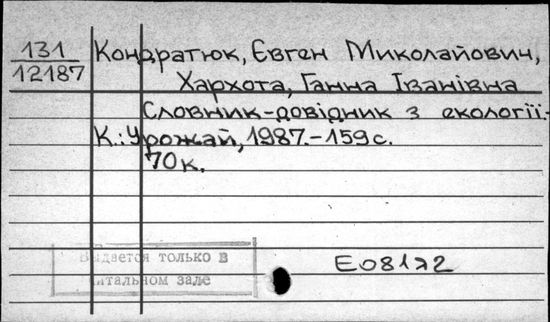 131
12187
Кондратюк, Євген Миколайович,
Хархота, Ганна Іванівна
Словник-довідник з екології.-
К.: Урожай, 1987.-159с.
70к.
Выдается только в
читальном зале
Е08172